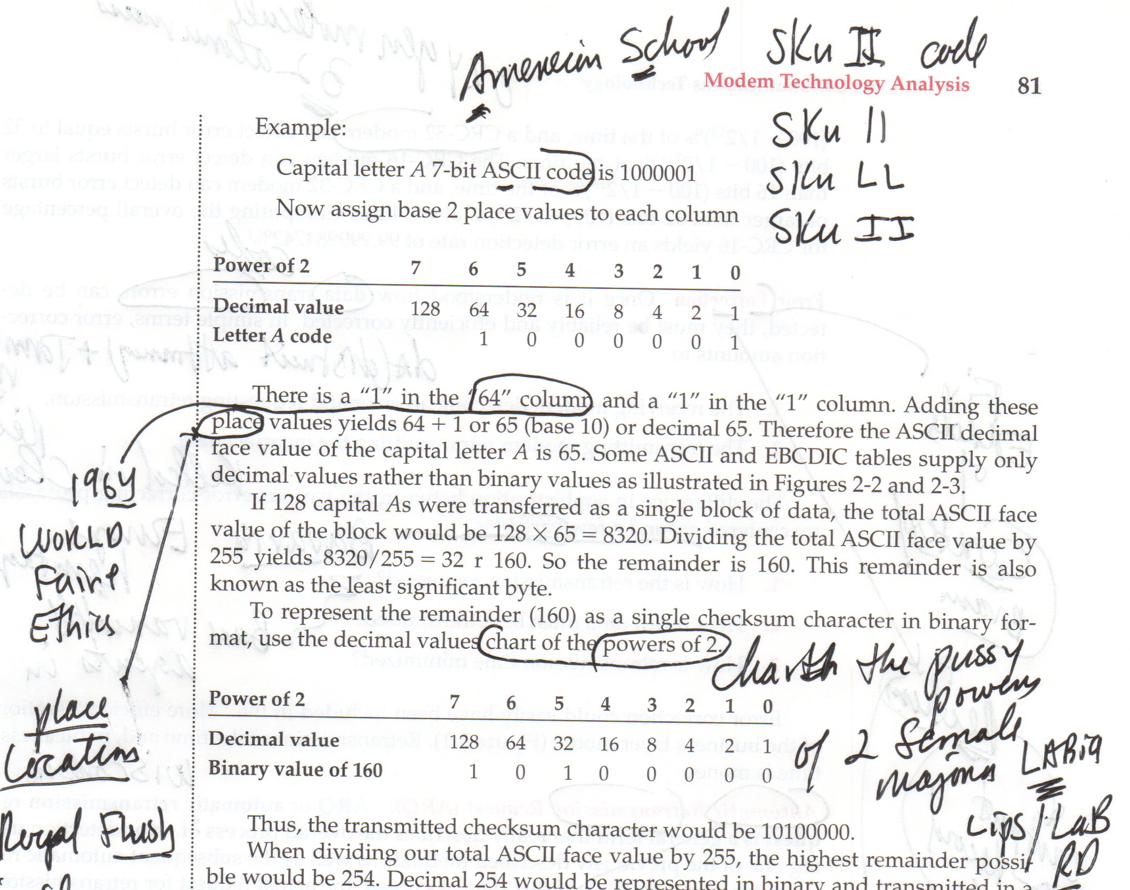 American School SKu II code
Modem Technology Analysis 81
SKu II
SKu LL
SKu II
Example:
Capital letter A 7-bit ASCII code is 1000001
Now assign base 2 place values to each column
Power of 2 7 6 5 4 3 2 1 0
Decimal value 128 64 32 16 8 4 2 1
Letter A code 1 0 0 0 0 0 1
There is a “1” in the “64” column and a “1” in the “1” column. Adding these
place values yields 64 + 1 or 65 (base 10) or decimal 65. Therefore the ASCII decimal
face value of the capital letter A is 65. Some ASCII and EBCDIC tables supply only
decimal values rather than binary values as illustrated in Figures 2-2 and 2-3.
If 128 capital As were transferred as a single block of data, the total ASCII face
value of the block would be 128 × 65 = 8320. Dividing the total ASCII face value by
255 yields 8320/255 = 32 r 160. So the remainder is 160. This remainder is also
known as the least significant byte.
To represent the remainder (160) as a single checksum character in binary for-
mat, use the decimal values chart of the powers of 2.
Power of 2 7 6 5 4 3 2 1 0
Decimal value 128 64 32 16 8 4 2 1
Binary value of 160 1 0 1 0 0 0 0 0
Thus, the transmitted checksum character would be 10100000.
When dividing our total ASCII face value by 255, the highest remainder possi-
ble would be 254. Decimal 254 would be represented in binary and transmitted in a
World
Faire
Ethics
place
Location
Royal Flush
the pussy
powers
of 2
majora LABia
Lips + LaB
RD